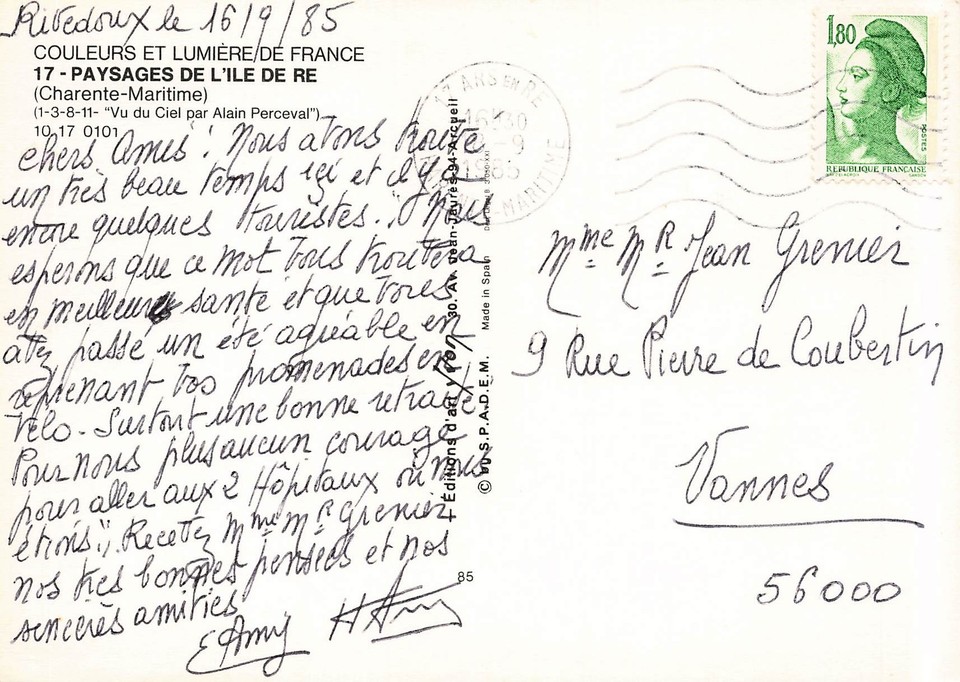 Rivedoux le 16/9/85
COULEURS ET LUMIÈRE DE FRANCE
17 - PAYSAGES DE L'ILE DE RE
(Charente-Maritime)
(1-3-8-11- "Vu du Ciel par Alain Perceval")
10 17 0101
chers Amis! Nous avons trouvé
un très beau temps ici et il y a
encore quelques touristes. Nous
esperons que ce mot vous trouvera
en meilleure santé et que vous
avez passé un été agréable en
reprenant vos promenades en
vélo - Surtout une bonne retraite!
Pour nous plus aucun courage
pour aller aux 2 Hôpitaux où nous
étions!! Recevez Mme Mr Grenier
nos très bonnes pensées et nos
sincères amitiés
E Amy H Amy
+ Éditions d'art Yvon 30. Av. Jean-Jaurès-94-Arcueil
© by S.P.A.D.E.M. Made in Spain
85
17 ARS EN RE
16H30
-9
1985
MARITIME
1,80
POSTES
REPUBLIQUE FRANÇAISE
Mme Mr Jean Grenier
9 Rue Pierre de Coubertin
Vannes
56000